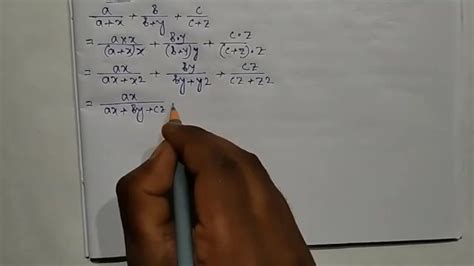 a/(a+x) + b/(b+y) + c/(c+z)
= (a×x)/((a+x)x) + (b·y)/((b+y)y) + (c·z)/((c+z)·z)
= ax/(ax+x2) + by/(by+y2) + cz/(cz+z2)
= ax/(ax+by+cz)